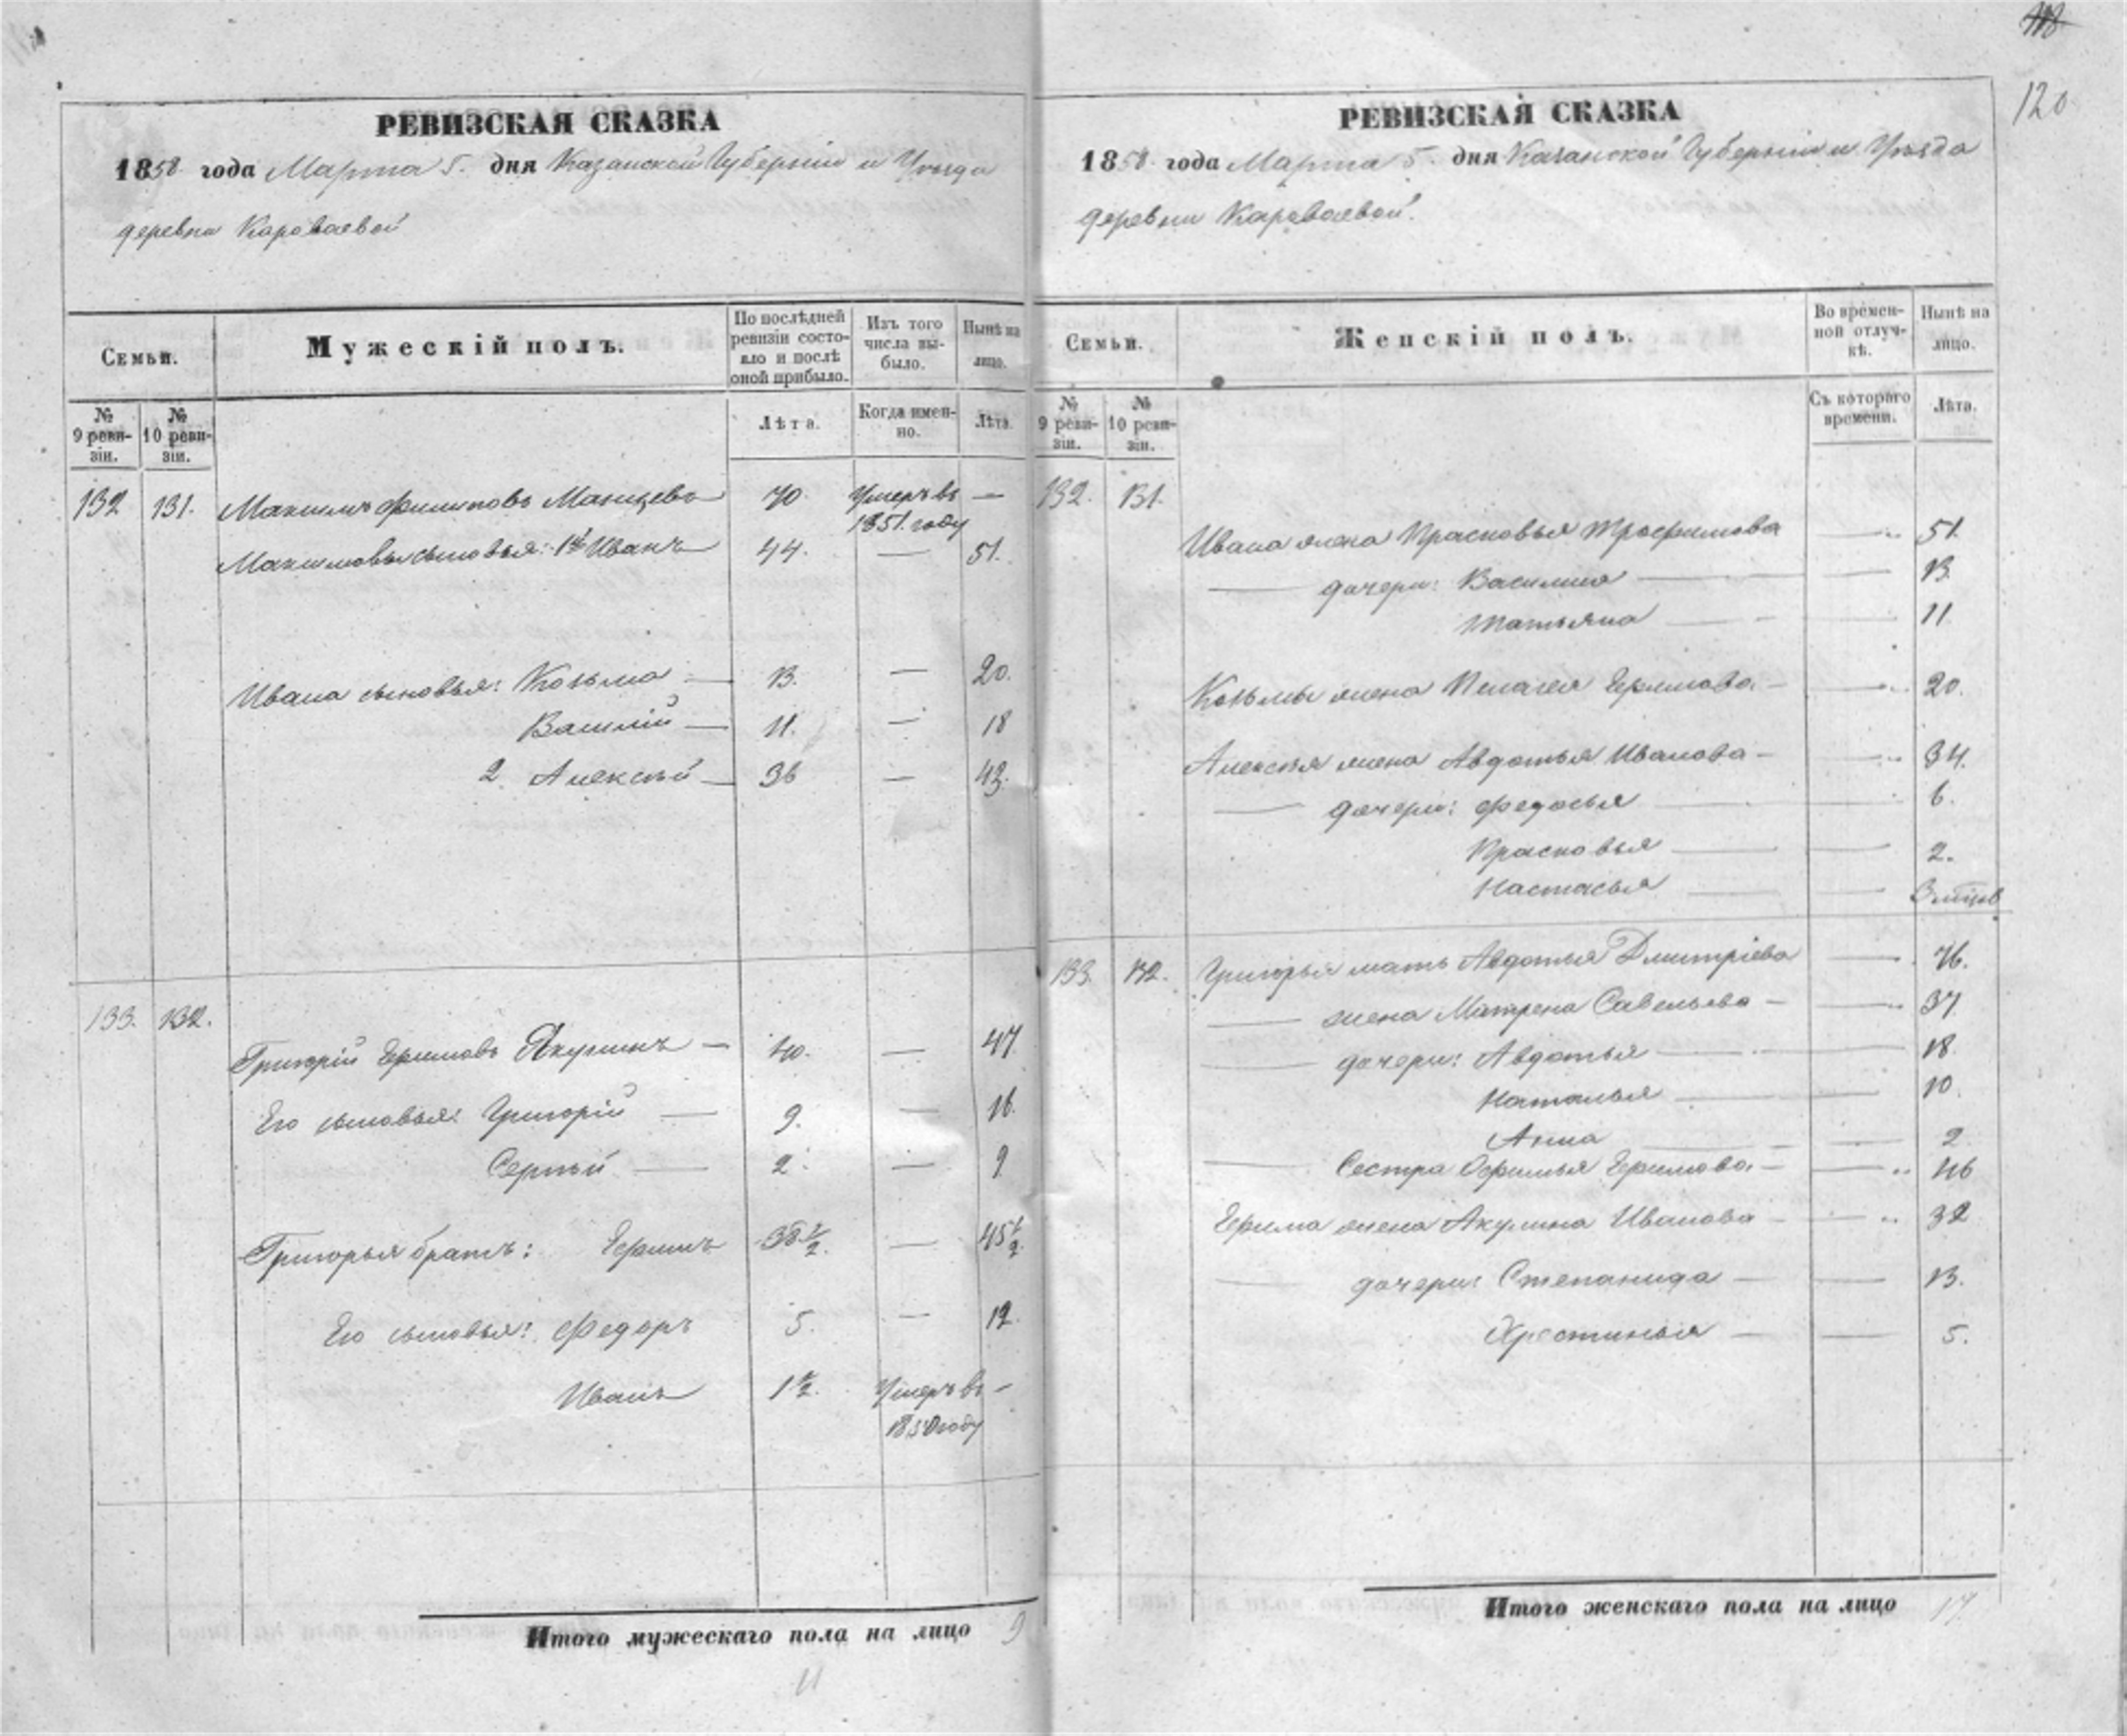 120
РЕВИЗСКАЯ СКАЗКА
1858 года Марта 5. дня Казанской Губерніи и Уѣзда
деревни Караваевой
Семьи.
Мужескій полъ.
По послѣдней ревизіи состояло и послѣ оной прибыло.
Изъ того числа выбыло.
Нынѣ на лицо.
№ 9 ревизіи.
№ 10 ревизіи.
Лѣта.
Когда именно.
Лѣта.
132 131. Максимъ Филиповъ Манцевъ 70. Умеръ въ 1851 году —
Максимовы сыновья: 1й Иванъ 44. — 51.
Ивана сыновья: Козьма — 13. — 20.
Василій — 11. — 18
2. Алексѣй — 36 — 43.
133. 132.
Григорій Ефимовъ Якунинъ — 40. — 47
Его сыновья: Григорій — 9. — 16.
Сергѣй — 2. — 9
Григорья братъ: Ефимъ 38 1/2. — 45 1/2.
Его сыновья: Федоръ 5. — 12.
Иванъ 1 1/2. Умеръ въ 1850 году —
Итого мужескаго пола на лицо 9
11
РЕВИЗСКАЯ СКАЗКА
1858 года Марта 5. дня Казанской Губерніи и Уѣзда
деревни Караваевой.
Семьи.
Женскій полъ.
Во временной отлучкѣ.
Нынѣ на лицо.
№ 9 ревизіи.
№ 10 ревизіи.
Съ котораго времени.
Лѣта.
132. 131.
Ивана жена Прасковья Трофимова — 51.
— дочери: Василиса — — 13.
Татьяна — — 11.
Козьмы жена Пелагея Ефимова — — 20.
Алексѣя жена Авдотья Иванова — — 34.
— дочери: Федосья — — 6.
Прасковья — — 2.
Настасья — — 3 мѣсяцов
133. 132. Григорья мать Авдотья Дмитріева — 76.
— жена Матрена Савельева — — 37
— дочери: Авдотья — — 18
Наталья — — 10.
Анна — — 2
— Сестра Офимья Ефимова — — 46
Ефима жена Акулина Иванова — — 32
— дочери: Степанида — — 13.
Хрестинья — — 5.
Итого женскаго пола на лицо 17.